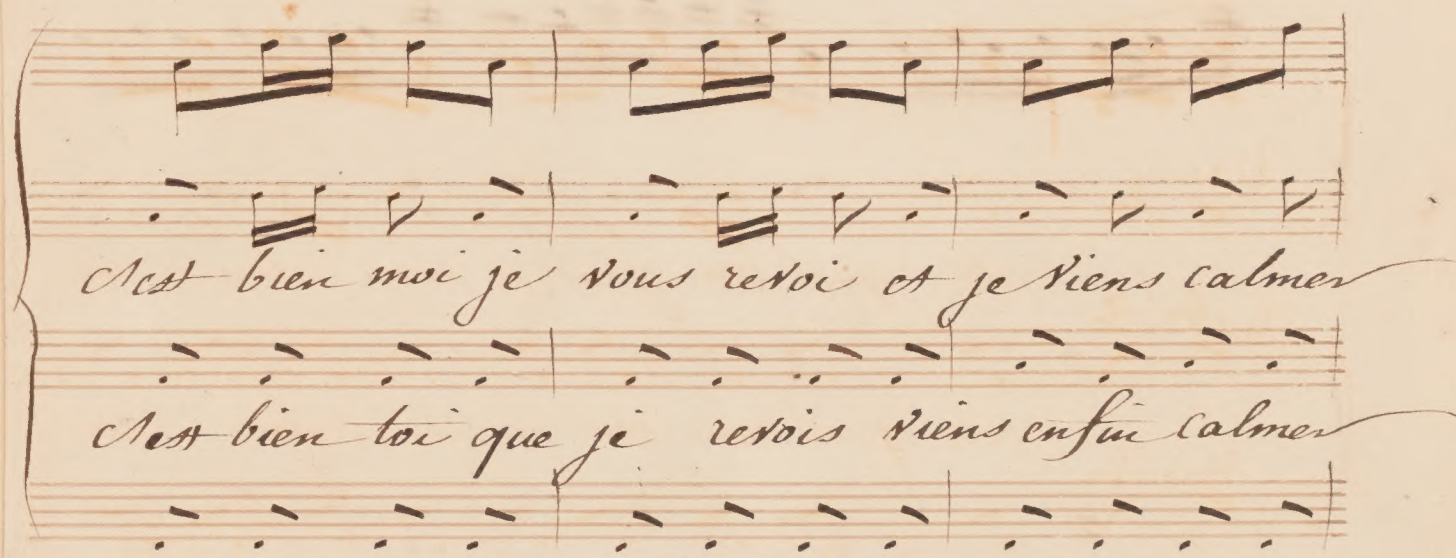 c'est bien moi je vous revoi et je viens calmer
c'est bien toi que je revois viens enfin calmer